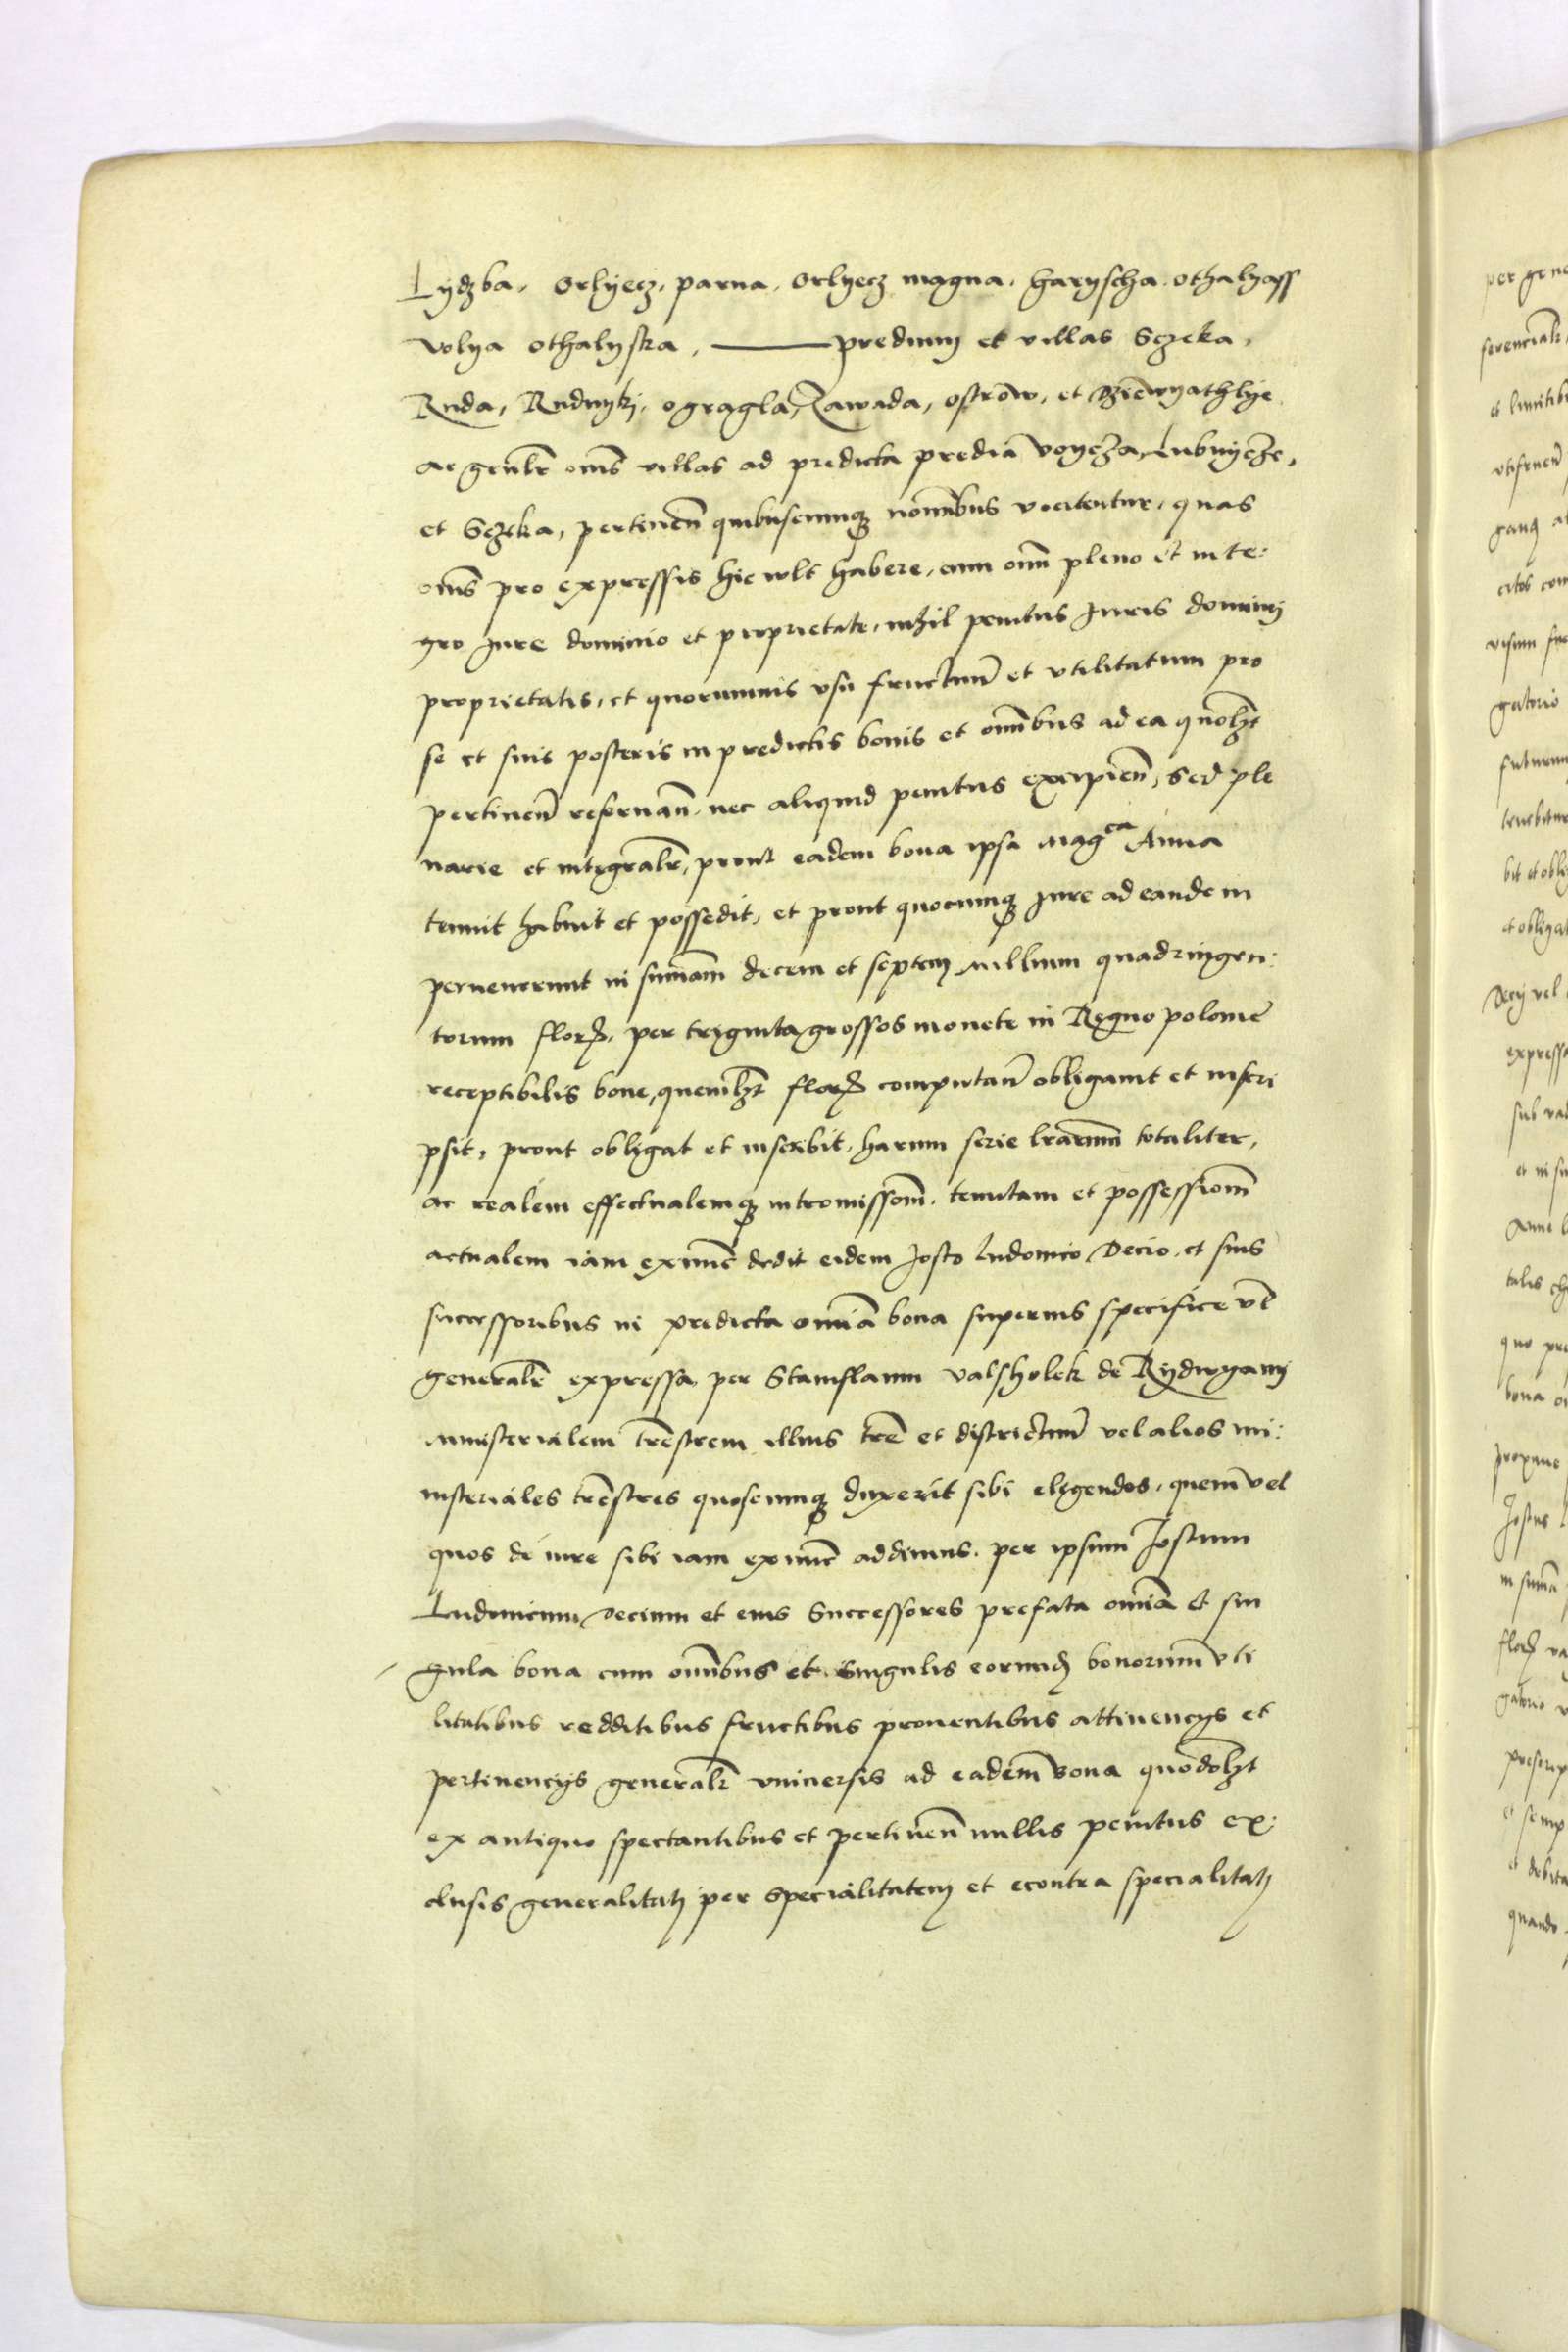 Lydzba, Orlyecz, parua, Orlyecz magna, Haryscha, Othalyass
volya Othalyska, ——— predium et villas Sczeka,
Ruda, Rudnyki, Ogragla, Zawada, Ostrow, et
ac genlr oms villas ad predicta predia Voycza, Lubnycze,
et Sczeka, pertinen quibuscunq nomibus vocitentur, quas
oms pro expressis hic vult habere, cum omi pleno et inte:
gro Jure dominio et proprietate, nihil penitus Juris dominij
proprietatis, et quorumuis vsu fructuum et vtilitatum pro
se et suis posteris in predictis bonis et omibus ad ea quolzt
pertinen reseruan, nec aliquid penitus excipien, Sed ple
narie et integralr, prout eadem bona ipsa Magca Anna
tenuit habuit et possedit, et prout quocunq Jure ad eandem
peruenerunt in sumam decem et septem millium quadringen:
torum flor, per triginta grossos monete in Regno polonie
receptibilis bone, quemlzt flor computan obligauit et inscri
psit, prout obligat et inscribit, harum serie lrarum totaliter,
ac realem effectualemq intromissom, tenutam et possessiom
actualem iam exnuc dedit eidem Josto Ludouico Decio, et suis
successoribus in predicta omia bona superius specifice vl
generalr expressa per Stanislaum Valsholek de Rydwgany
ministerialem trestrem illius tre et districtuum vel alios mi:
nisteriales trestres quoscunq duxerit sibi eligendos, quem vel
quos de iure sibi iam exnuc addimus, per ipsum Jostum
Ludouicum Decium et eius Successores prefata omia et sin
gula bona cum omibus et singulis eorund bonorum vti
litatibus redditibus fructibus prouentibus attinencys et
pertinencijs generalr vniuersis ad eadem bona quomodolzt
ex antiquo spectantibus et pertinen nullis penitus ex:
clusis generalitatj per specialitatem et econtra specialitatj